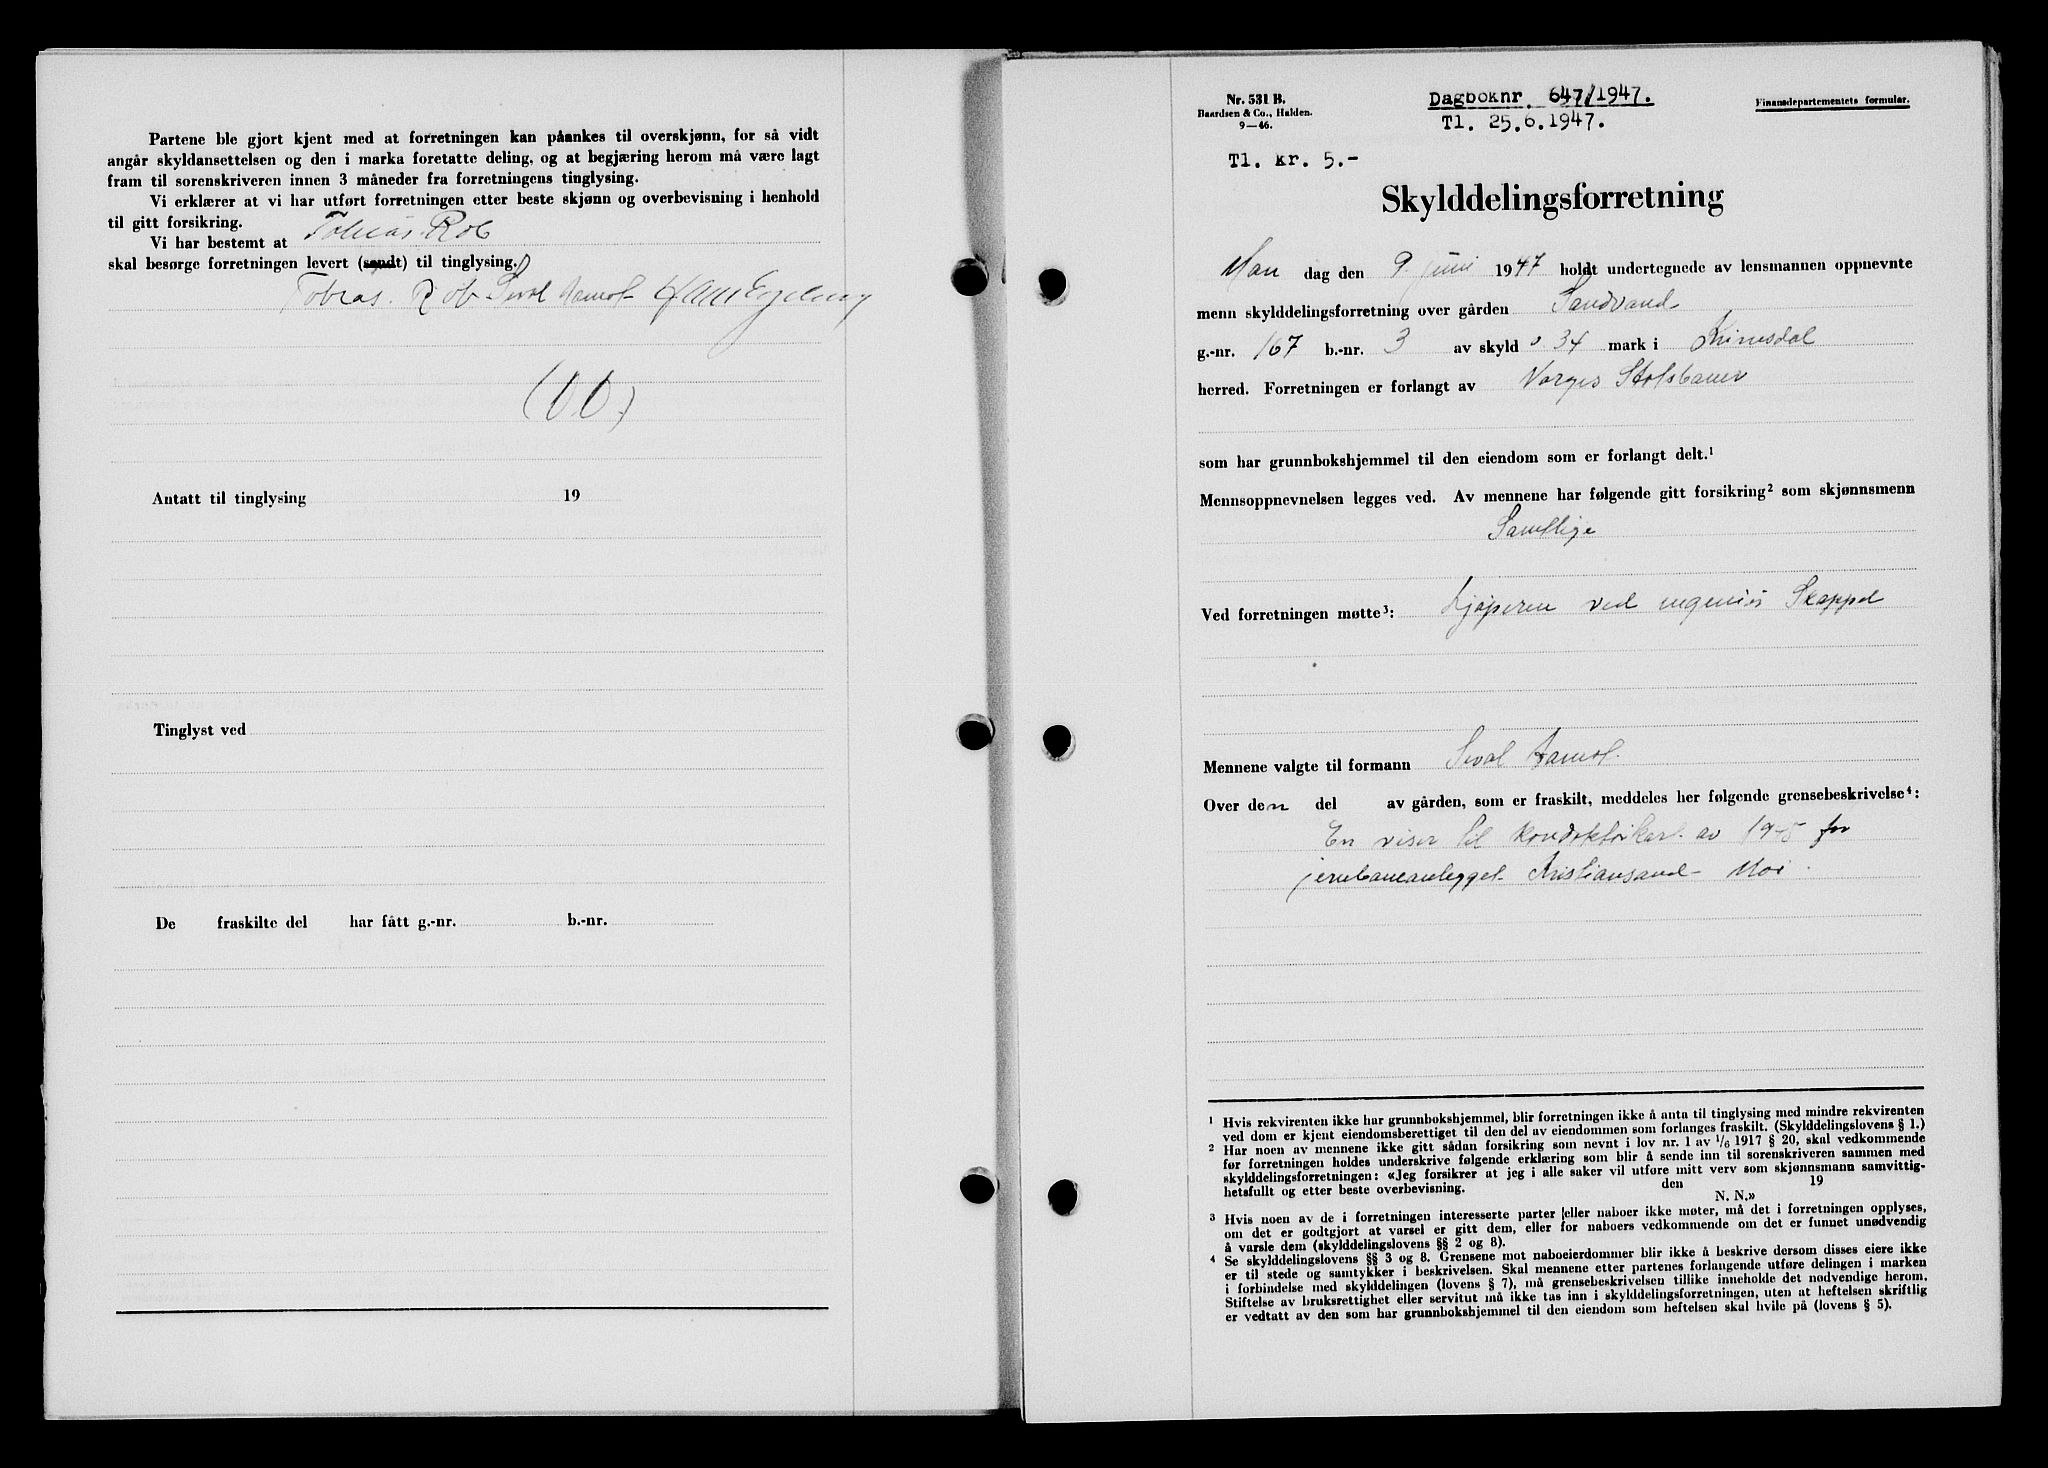 Partene ble gjort kjent med at forretningen kan påankes til overskjønn, for så vidt
angår skyldansettelsen og den i marka foretatte deling, og at begjæring herom må være lagt
fram til sorenskriveren innen 3 måneder fra forretningens tinglysing.
Vi erklærer at vi har utført forretningen etter beste skjønn og overbevisning i henhold
til gitt forsikring.
Vi har bestemt at Tobias Rob
skal besørge forretningen levert (sendt) til tinglysing.
Tobias Rob
Antatt til tinglysing 19
Tinglyst ved
De fraskilte del har fått g.-nr. b.-nr.
Nr. 531 B.
Baardsen & Co., Halden.
9—46.
Dagboknr 647/1947.
Tl. 25.6.1947.
Finansdepartementets formular.
Tl. kr. 5.-
Skylddelingsforretning
Man dag den 9. juni 1947 holdt undertegnede av lensmannen oppnevnte
menn skylddelingsforretning over gården Sandvand
g.-nr. 167 b.-nr. 3 av skyld 0.34 mark i Kvinesdal
herred. Forretningen er forlangt av Norges Statsbaner
som har grunnbokshjemmel til den eiendom som er forlangt delt.¹
Mennsoppnevnelsen legges ved. Av mennene har følgende gitt forsikring² som skjønnsmenn
Samtlige
Ved forretningen møtte³: Kjøperen ved ingeniør Skappel
Mennene valgte til formann
Over den del av gården, som er fraskilt, meddeles her følgende grensebeskrivelse⁴:
En viser til konduktørkart av for
jernbaneanlegget Kristiansand - Moi.
¹ Hvis rekvirenten ikke har grunnbokshjemmel, blir forretningen ikke å anta til tinglysing med mindre rekvirenten
ved dom er kjent eiendomsberettiget til den del av eiendommen som forlanges fraskilt. (Skylddelingslovens § 1.)
² Har noen av mennene ikke gitt sådan forsikring som nevnt i lov nr. 1 av ¹/₆ 1917 § 20, skal vedkommende
før forretningen holdes underskrive følgende erklæring som blir å sende inn til sorenskriveren sammen med
skylddelingsforretningen: «Jeg forsikrer at jeg i alle saker vil utføre mitt verv som skjønnsmann samvittig-
hetsfullt og etter beste overbevisning. den 19
N. N.»
³ Hvis noen av de i forretningen interesserte parter eller naboer ikke møter, må det i forretningen opplyses,
om det er godtgjort at varsel er gitt dem, eller for naboers vedkommende om det er funnet unødvendig
å varsle dem (skylddelingslovens §§ 2 og 8).
⁴ Se skylddelingslovens §§ 3 og 8. Grensene mot naboeierdommer blir ikke å beskrive dersom disses eiere ikke
er til stede og samtykker i beskrivelsen. Skal mennene etter partenes forlangende utføre delingen i marken
i forbindelse med skylddelingen (lovens § 7), må grensebeskrivelsen tillike inneholde det nødvendige herom.
Stiftelse av bruksrettighet eller servitut må ikke tas inn i skylddelingsforretningen, uten at heftelsen skriftlig
er vedtatt av den som har grunnbokshjemmel til den eiendom som heftelsen skal hvile på (lovens § 5).